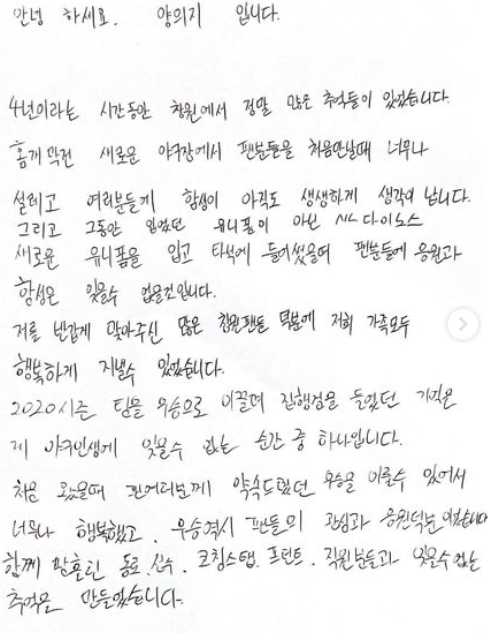 안녕 하세요. 양의지 입니다.
4년이라는 시간동안 창원에서 정말 많은 추억들이 있었습니다.
홈개막전 새로운 야구장에서 팬분들을 처음만날때 너무나
설레고 여러분들게 함성이 아직도 생생하게 생각이 납니다.
그리고 그동안 입었던 유니폼이 아닌 NC 다이노스
새로운 유니폼을 입고 타석에 들어썼을때 팬분들에 응원과
함성은 잊을수 없을것입니다.
저를 반갑게 맞아주신 많은 창원팬분 덕분에 저희 가족모두
행복하게 지낼수 있었습니다.
2020시즌 팀을 우승으로 이끌며 집행검을 들었던 기억은
제 야구인생에 잊을수 없는 순간 중 하나입니다.
처음 왔을때 팬여러분께 약속드렸던 우승을 이룰수 있어서
너무나 행복했고. 우승역시 팬들의 관심과 응원덕분이었습니다
함께 땀흘린 동료.선수. 코칭스탭. 프런트. 직원분들과 잊을수없는
추억을 만들었습니다.